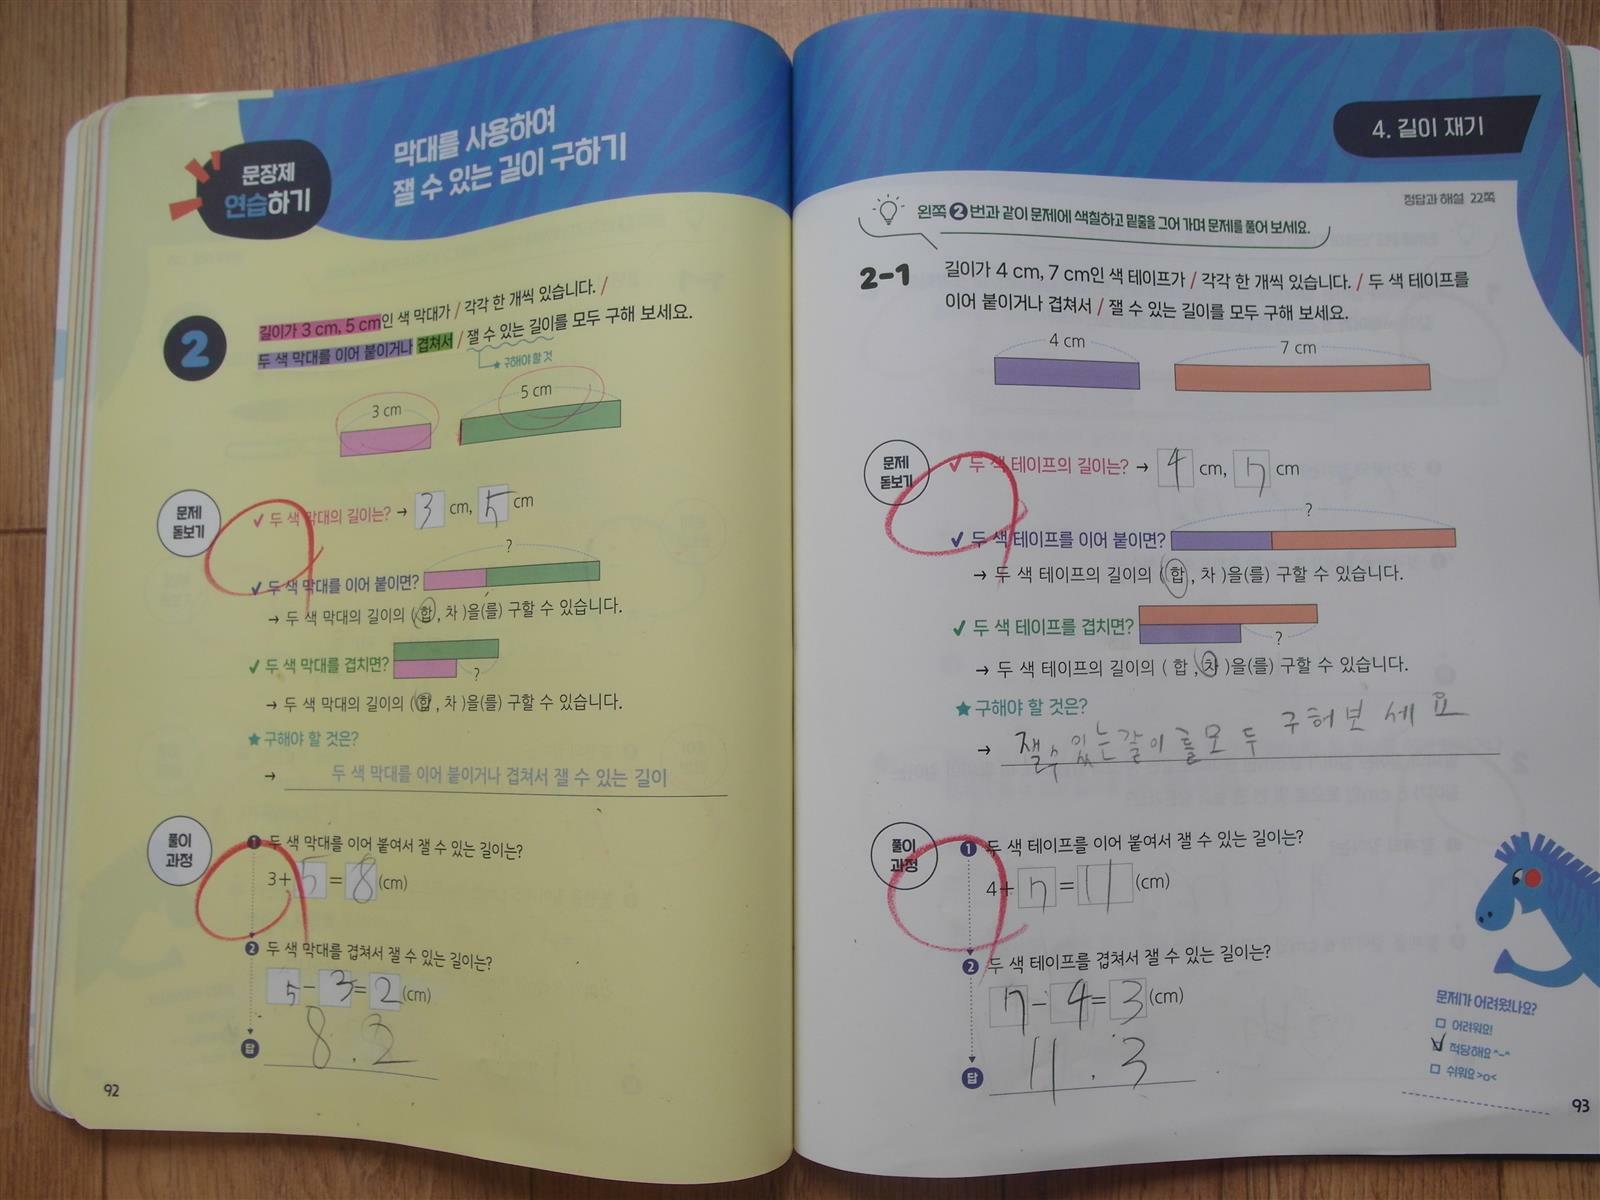 문장제
연습하기
막대를 사용하여
잴 수 있는 길이 구하기
2
길이가 3 cm, 5 cm인 색 막대가 / 각각 한 개씩 있습니다. /
두 색 막대를 이어 붙이거나 겹쳐서 / 잴 수 있는 길이를 모두 구해 보세요.
★구해야 할 것
3 cm
5 cm
문제
돋보기
✓ 두 색 막대의 길이는? → 3 cm, 5 cm
?
✓ 두 색 막대를 이어 붙이면?
→ 두 색 막대의 길이의 ( 합 , 차 )을(를) 구할 수 있습니다.
✓ 두 색 막대를 겹치면?
?
→ 두 색 막대의 길이의 ( 합 , 차 )을(를) 구할 수 있습니다.
★구해야 할 것은?
→ 두 색 막대를 이어 붙이거나 겹쳐서 잴 수 있는 길이
풀이
과정
1 두 색 막대를 이어 붙여서 잴 수 있는 길이는?
3+5=8(cm)
2 두 색 막대를 겹쳐서 잴 수 있는 길이는?
5-3=2(cm)
답 8. 2
92
4. 길이 재기
정답과 해설 22쪽
왼쪽 2 번과 같이 문제에 색칠하고 밑줄을 그어 가며 문제를 풀어 보세요.
2-1
길이가 4 cm, 7 cm인 색 테이프가 / 각각 한 개씩 있습니다. / 두 색 테이프를
이어 붙이거나 겹쳐서 / 잴 수 있는 길이를 모두 구해 보세요.
4 cm
7 cm
문제
돋보기
✓ 두 색 테이프의 길이는? → 4 cm, 7 cm
?
✓ 두 색 테이프를 이어 붙이면?
→ 두 색 테이프의 길이의 ( 합 , 차 )을(를) 구할 수 있습니다.
✓ 두 색 테이프를 겹치면?
?
→ 두 색 테이프의 길이의 ( 합 , 차 )을(를) 구할 수 있습니다.
★구해야 할 것은?
→ 잴수있는갈이를모두 구허보세요
풀이
과정
1 두 색 테이프를 이어 붙여서 잴 수 있는 길이는?
4+7=11(cm)
2 두 색 테이프를 겹쳐서 잴 수 있는 길이는?
7-4=3(cm)
답 11. 3
문제가 어려웠나요?
어려워요!
적당해요^-^
쉬워요>o<
93